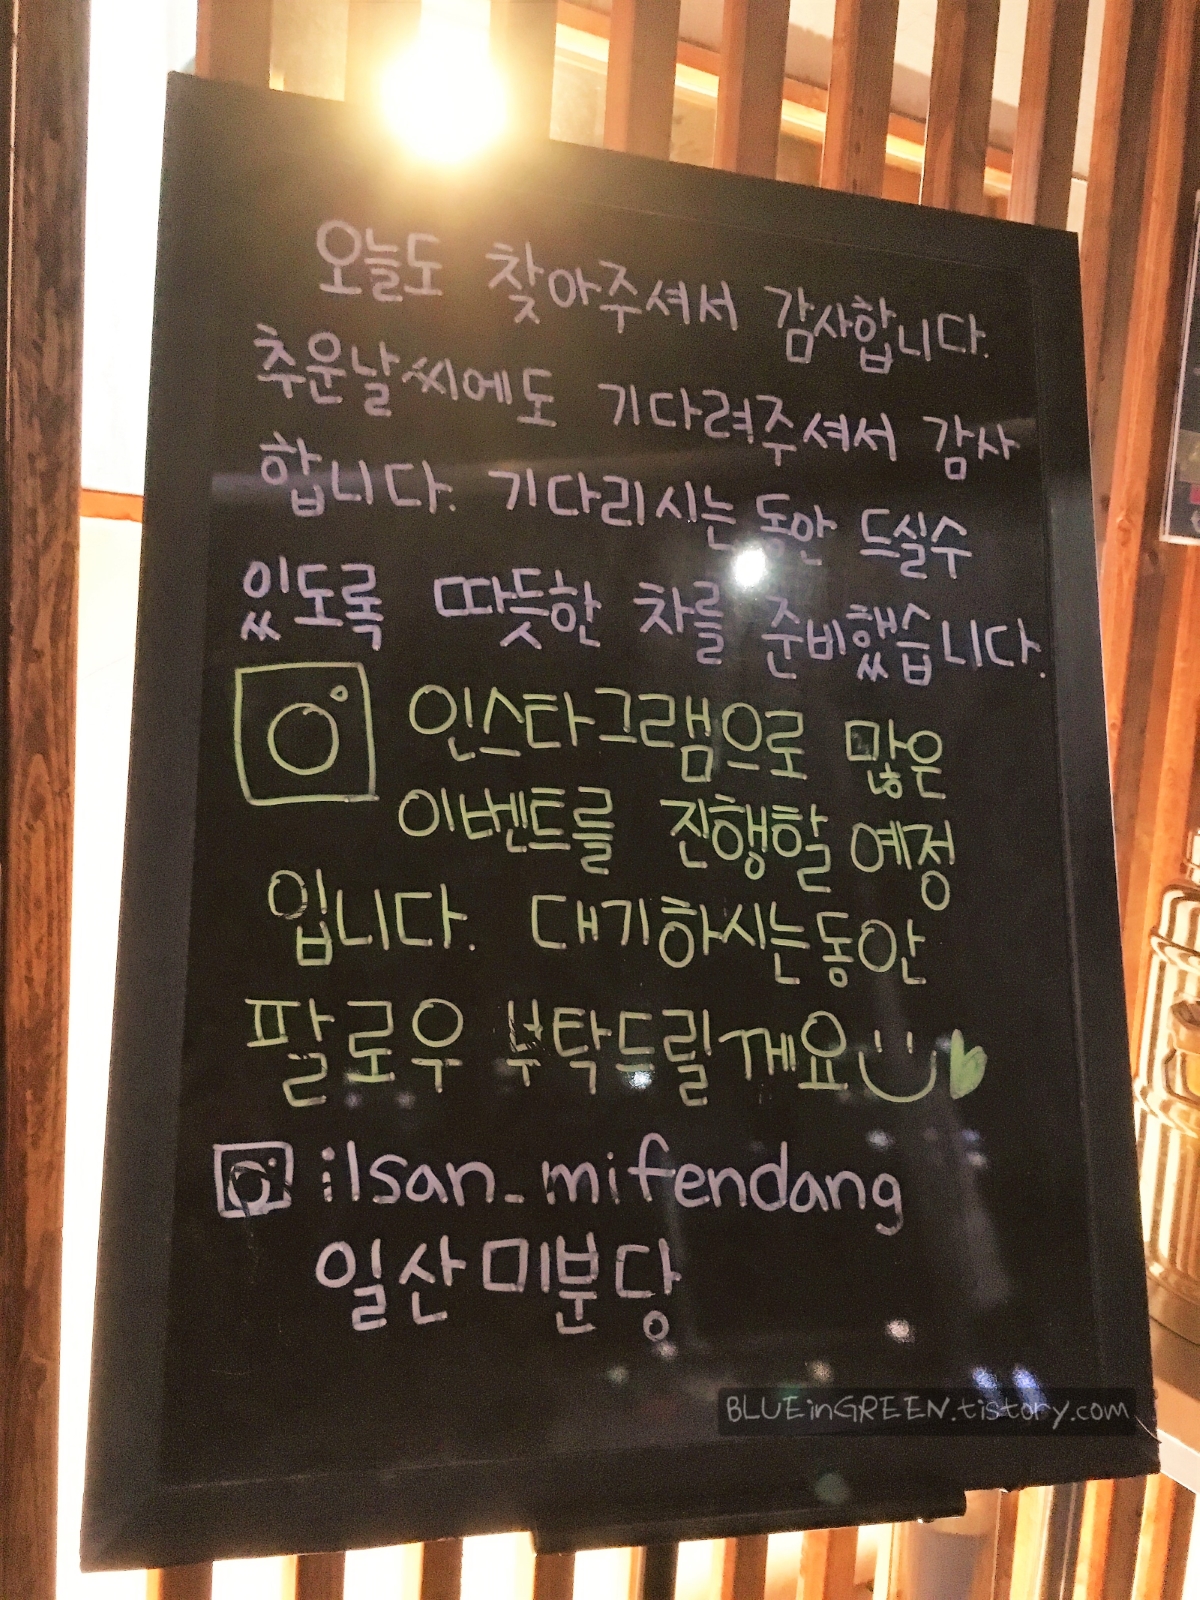 오늘도 찾아주셔서 감사합니다.
추운날씨에도 기다려주셔서 감사
합니다. 기다리시는 동안 드실수
있도록 따뜻한 차를 준비했습니다.
인스타그램으로 많은
이벤트를 진행할 예정
입니다. 대기하시는동안
팔로우 부탁드릴께요
ilsan_mifendang
일산미분당
BLUEinGREEN.tistory.com